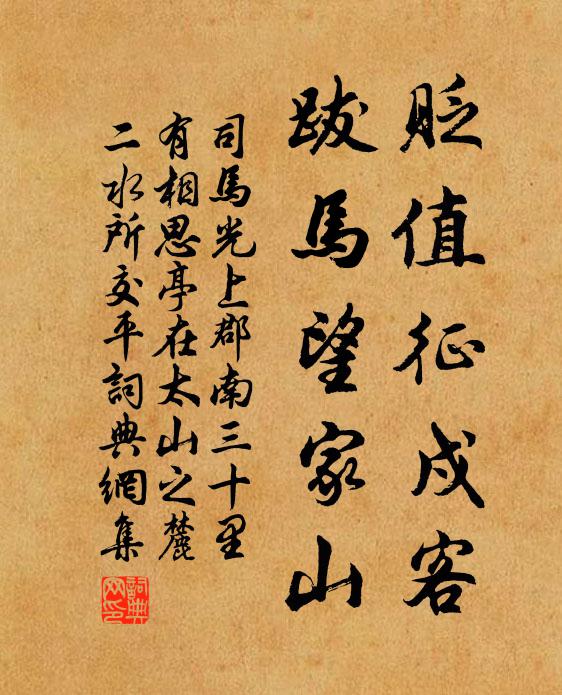 眨值征戍客
跋馬望家山
司馬光上郡南三十里
有相思亭在太山之麓
二水所交平詞典網集
詞典
网印